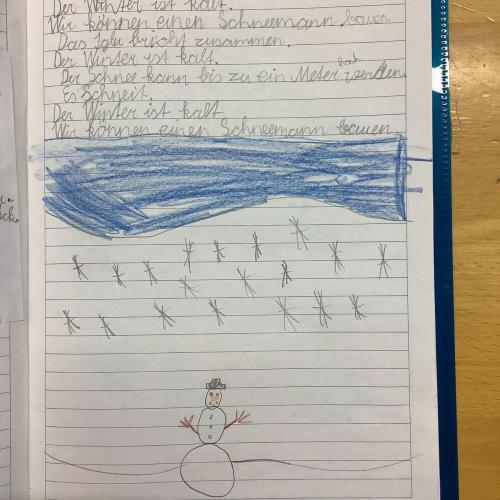 Der Winter ist kalt.
Wir können einen Schneemann bauen
Das Iglu bricht zusammen.
Der Winter ist kalt.
Der Schnee kann bis zu ein Meter hoch werden.
Es Schneit.
Der Winter ist kalt
Wir können einen Schneemann bauen